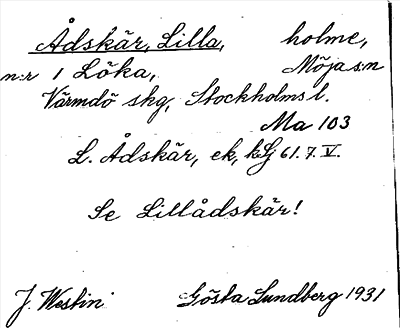 Ådskär, Lilla, holme,
n:r 1 Löka, Möja s:n
Värmdö skg, Stockholms l.
Ma 103
L. Ådskär, ek, 61.7.V.
Se Lillådskär!
J. Westin Gösta Lundberg 1931